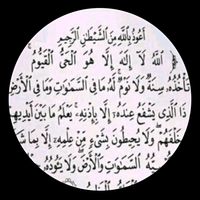 أَعُوذُ بِاللَّهِ مِنَ الشَّيْطَٰنِ الرَّجِيمِ
ٱللَّهُ لَآ إِلَٰهَ إِلَّا هُوَ ٱلْحَىُّ ٱلْقَيُّومُ
تَأْخُذُهُۥ سِنَةٌ وَلَا نَوْمٌ لَّهُۥ مَا فِى ٱلسَّمَٰوَٰتِ وَمَا فِى ٱلْأَرْضِ
ذَا ٱلَّذِى يَشْفَعُ عِندَهُۥٓ إِلَّا بِإِذْنِهِۦ يَعْلَمُ مَا بَيْنَ أَيْدِيهِمْ
خَلْفَهُمْ وَلَا يُحِيطُونَ بِشَىْءٍ مِّنْ عِلْمِهِۦٓ إِلَّا بِمَا
ٱلسَّمَٰوَٰتِ وَٱلْأَرْضَ وَلَا يَـُٔودُهُۥ